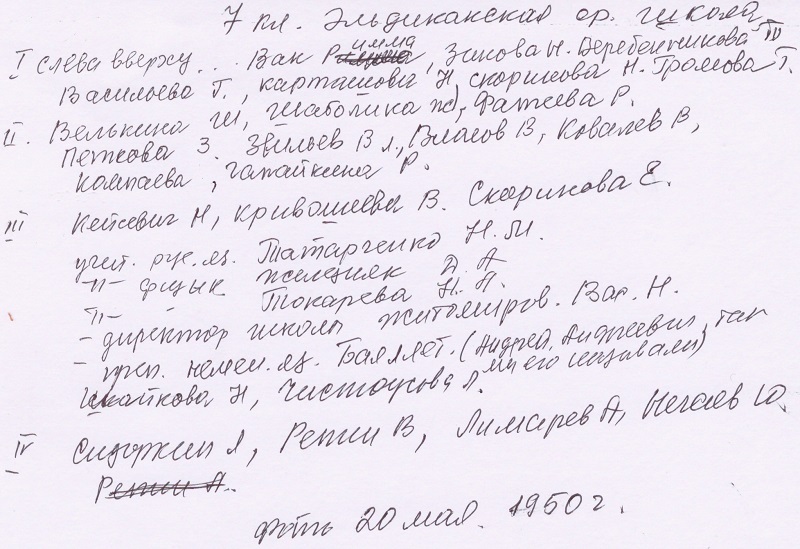 7 кл. Эльдиканская ср. школа,
I слева вверху.. Вак Римма, Зинова Н. Веребенникова IV
Васильева Г., Карташова Н, Скорикова Н. Громова Т.
II. Велькина Ш, Шаболика Ж, Фатеева Р.
Петкова З. Вл., Власов В, Ковалев В,
Компаева, Чапайкина Р.
III Кейзевич Н, Кривошеева В. Скорикова Е.
учит. рус. яз. Татарченко Н. М.
-"- физик Железняк Д. А
-"- Токарева Н. А.
- директор школы Житомиров. Вар. Н.
- преп. немец. яз. Баллет. (Андрей Андреевич, так
мы его называли)
Шайкова Н, Чистоусова Л.
IV Сидоркин А, Репин В, Лимарев А, Негаев Ю.
Репин А.
Фото 20 мая. 1950 г.